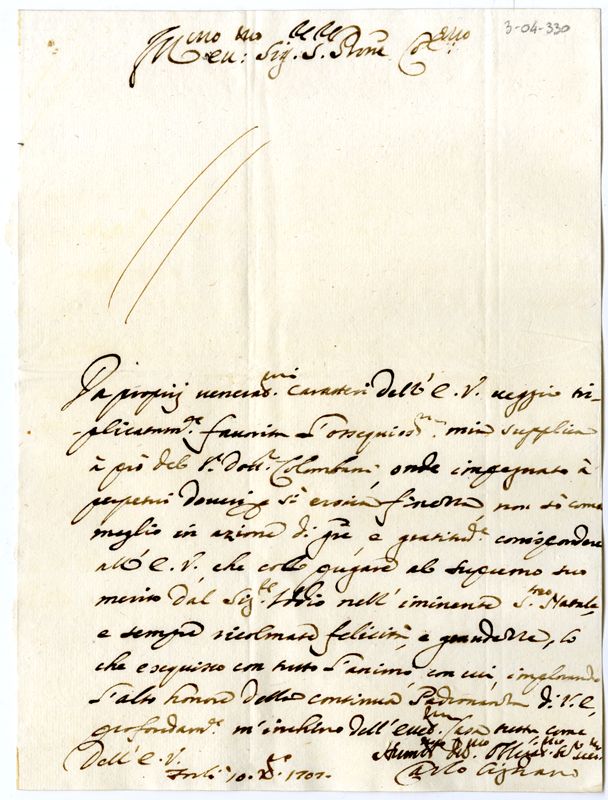 3-04-330
Em.mo e Rev: Sig. S. Prone Col.mo
Da proprij venerat.mi caratteri dell' E. V. veggio tri-
-plicatam.te favorita l'ossequios.ma mia supplica
à prò del S.r Dott.r Colombani onde impegnato à
perpetui doveri p sì eroica finezza non sò come
meglio in azione di gre, e gratitud.e corrispondere
all' E. V. che col pregare al supremo suo
merito dal Sig.re Iddio nell' iminente S.mo Natale,
e sempre ricolmate felicità, e grandezze, lo
che eseguisco con tutto l'animo, con cui, implorando
l'alto honore della continua Padronanza di V. E.
profondam.te m'inchino dell' ecce.ma Casa tutta come
Dell' E. V.
Forlì 10. X.bre 1707.
Humil.mo Dev.mo Oblig.mo Ser.
Carlo Cignani